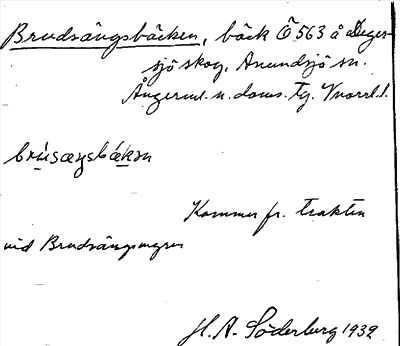 Brudsängsbäcken, bäck Ö 563 å Deger-
sjö skog, Anundsjö sn.
Ångerml. n. doms. tg. Vnorrl. l.
brúsæŋsbækən
Kommer fr. trakten
vid Brudsängsmyren
H. A. Söderberg 1932